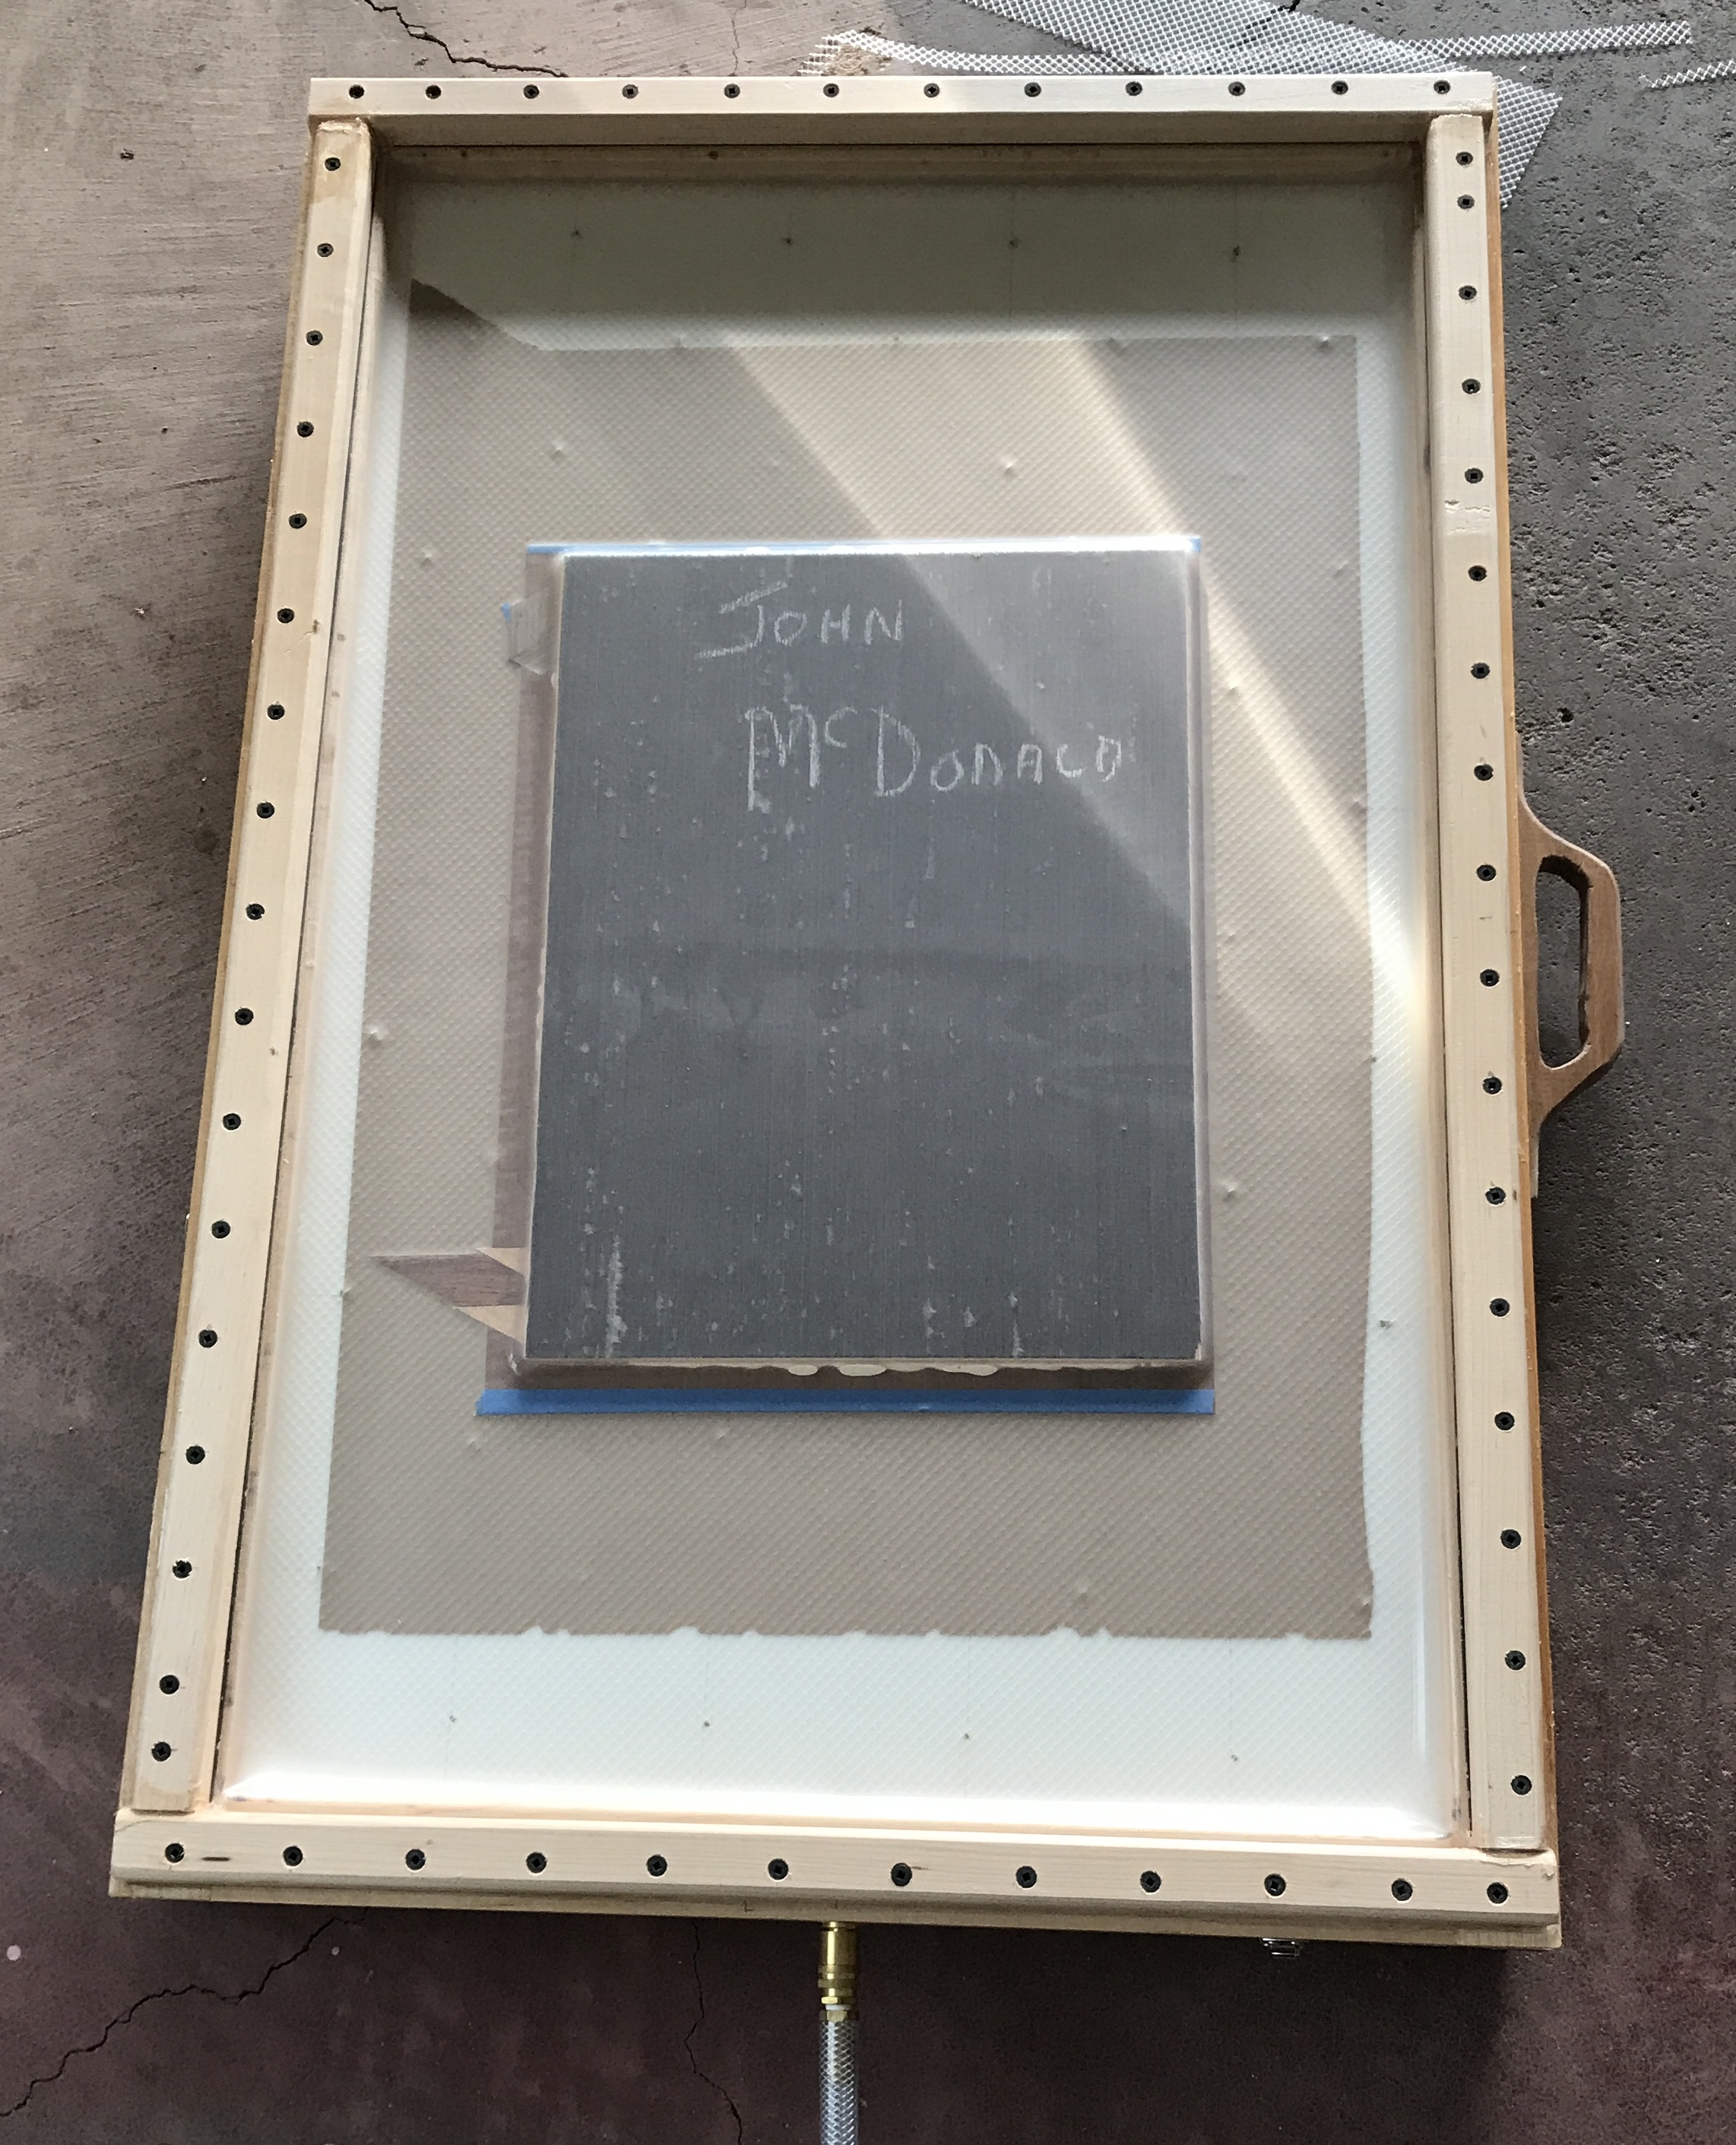 JOHN
McDONALD